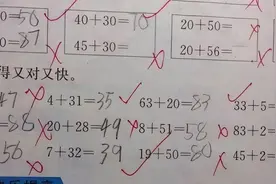 =50 40+30=70 20+50=
0=87 45+30= 20+56=
得又对又快。
47 4+31=35 63+20=83 33+5=
88 20+28=49 8+51=58 83+2=
56 7+32=39 19+50=80 45+2=